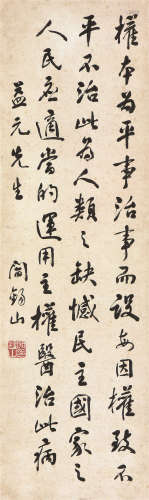 權本為平事治事而設每因權致不
平不治此為人類之缺憾民主國家之
人民應適當的運用主權醫治此病
益元先生
閻錫山